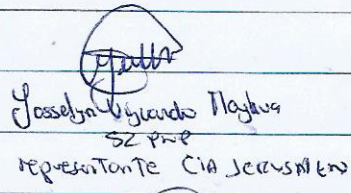 Josselyn Vizcardo Maybua
S2 PNP
representante CIA JERUSALEN